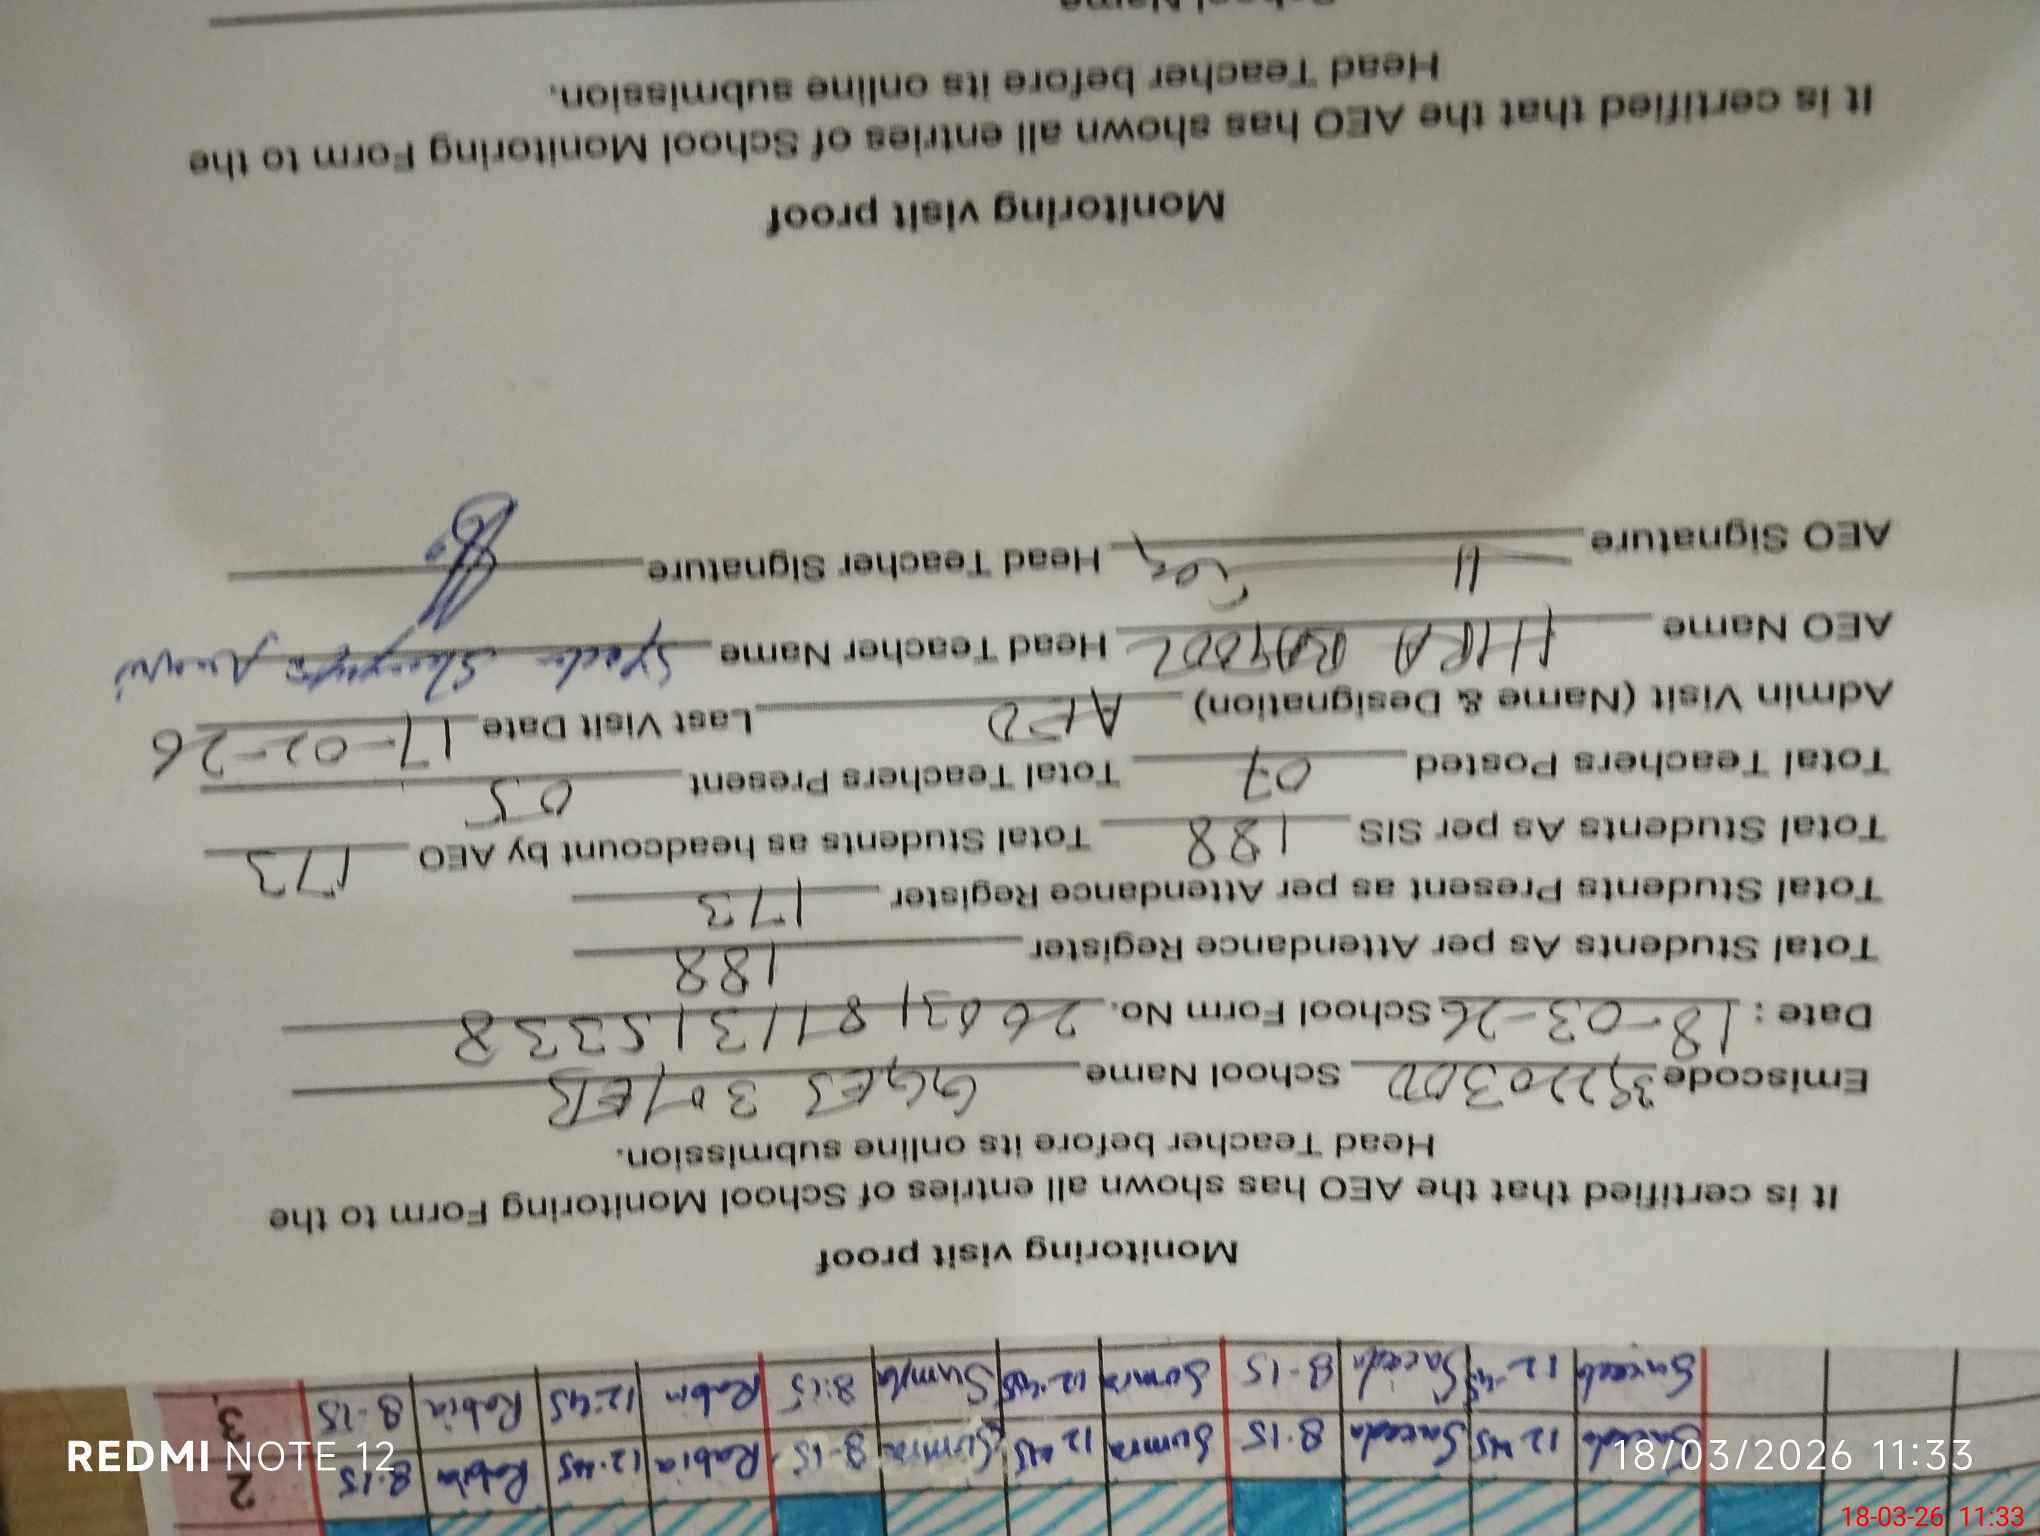 2 8:15 Rabia 12:45 Rabia 8-15 Sumra 12:45 Sumra 8:15 Saeeda 12:45 Saeeda
3. 8-15 Rabia 12:45 Rabia 8:15 Sumra 12:45 Sumra 8-15 Saeeda 12-45 Saeeda
Monitoring visit proof
It is certified that the AEO has shown all entries of School Monitoring Form to the
Head Teacher before its online submission.
Emiscode School Name GGES 301/EB
Date : 18-03-26 School Form No.
Total Students As per Attendance Register 188
Total Students Present as per Attendance Register 173
Total Students As per SIS 188 Total Students as headcount by AEO 173
Total Teachers Posted 07 Total Teachers Present 05
Admin Visit (Name & Designation) AEO Last Visit Date 17-02-26
AEO Name HIRA Head Teacher Name Syeda
AEO Signature Head Teacher Signature
Monitoring visit proof
It is certified that the AEO has shown all entries of School Monitoring Form to the
Head Teacher before its online submission.
School Name
REDMI NOTE 12
18/03/2026 11:33
18-03-26 11:33